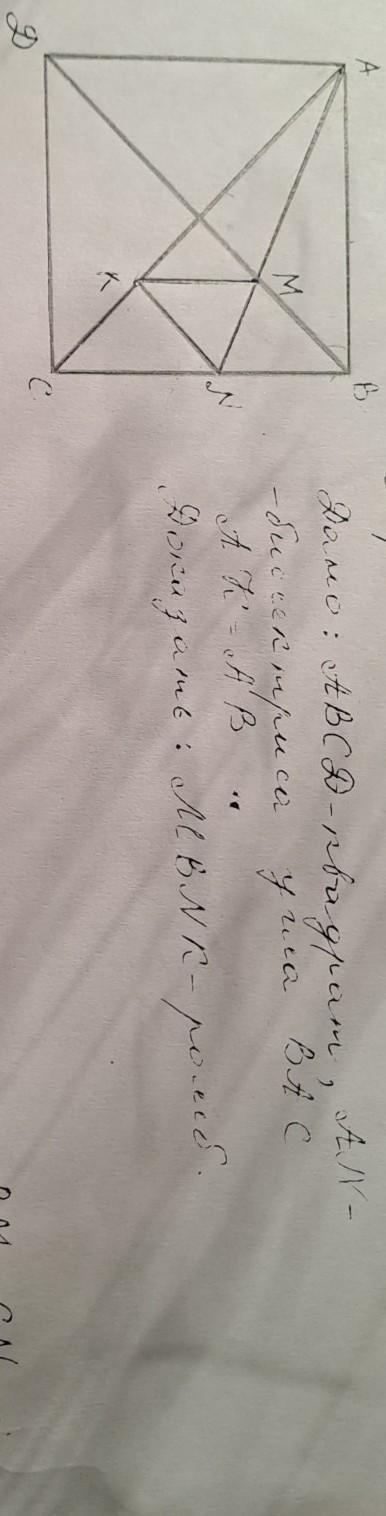 Д
A
K
M
C
N
B
Дано: ABCD - квадрат, AN -
- биссектриса угла BAC
AK = AB
Доказать: MBNK - ромб.